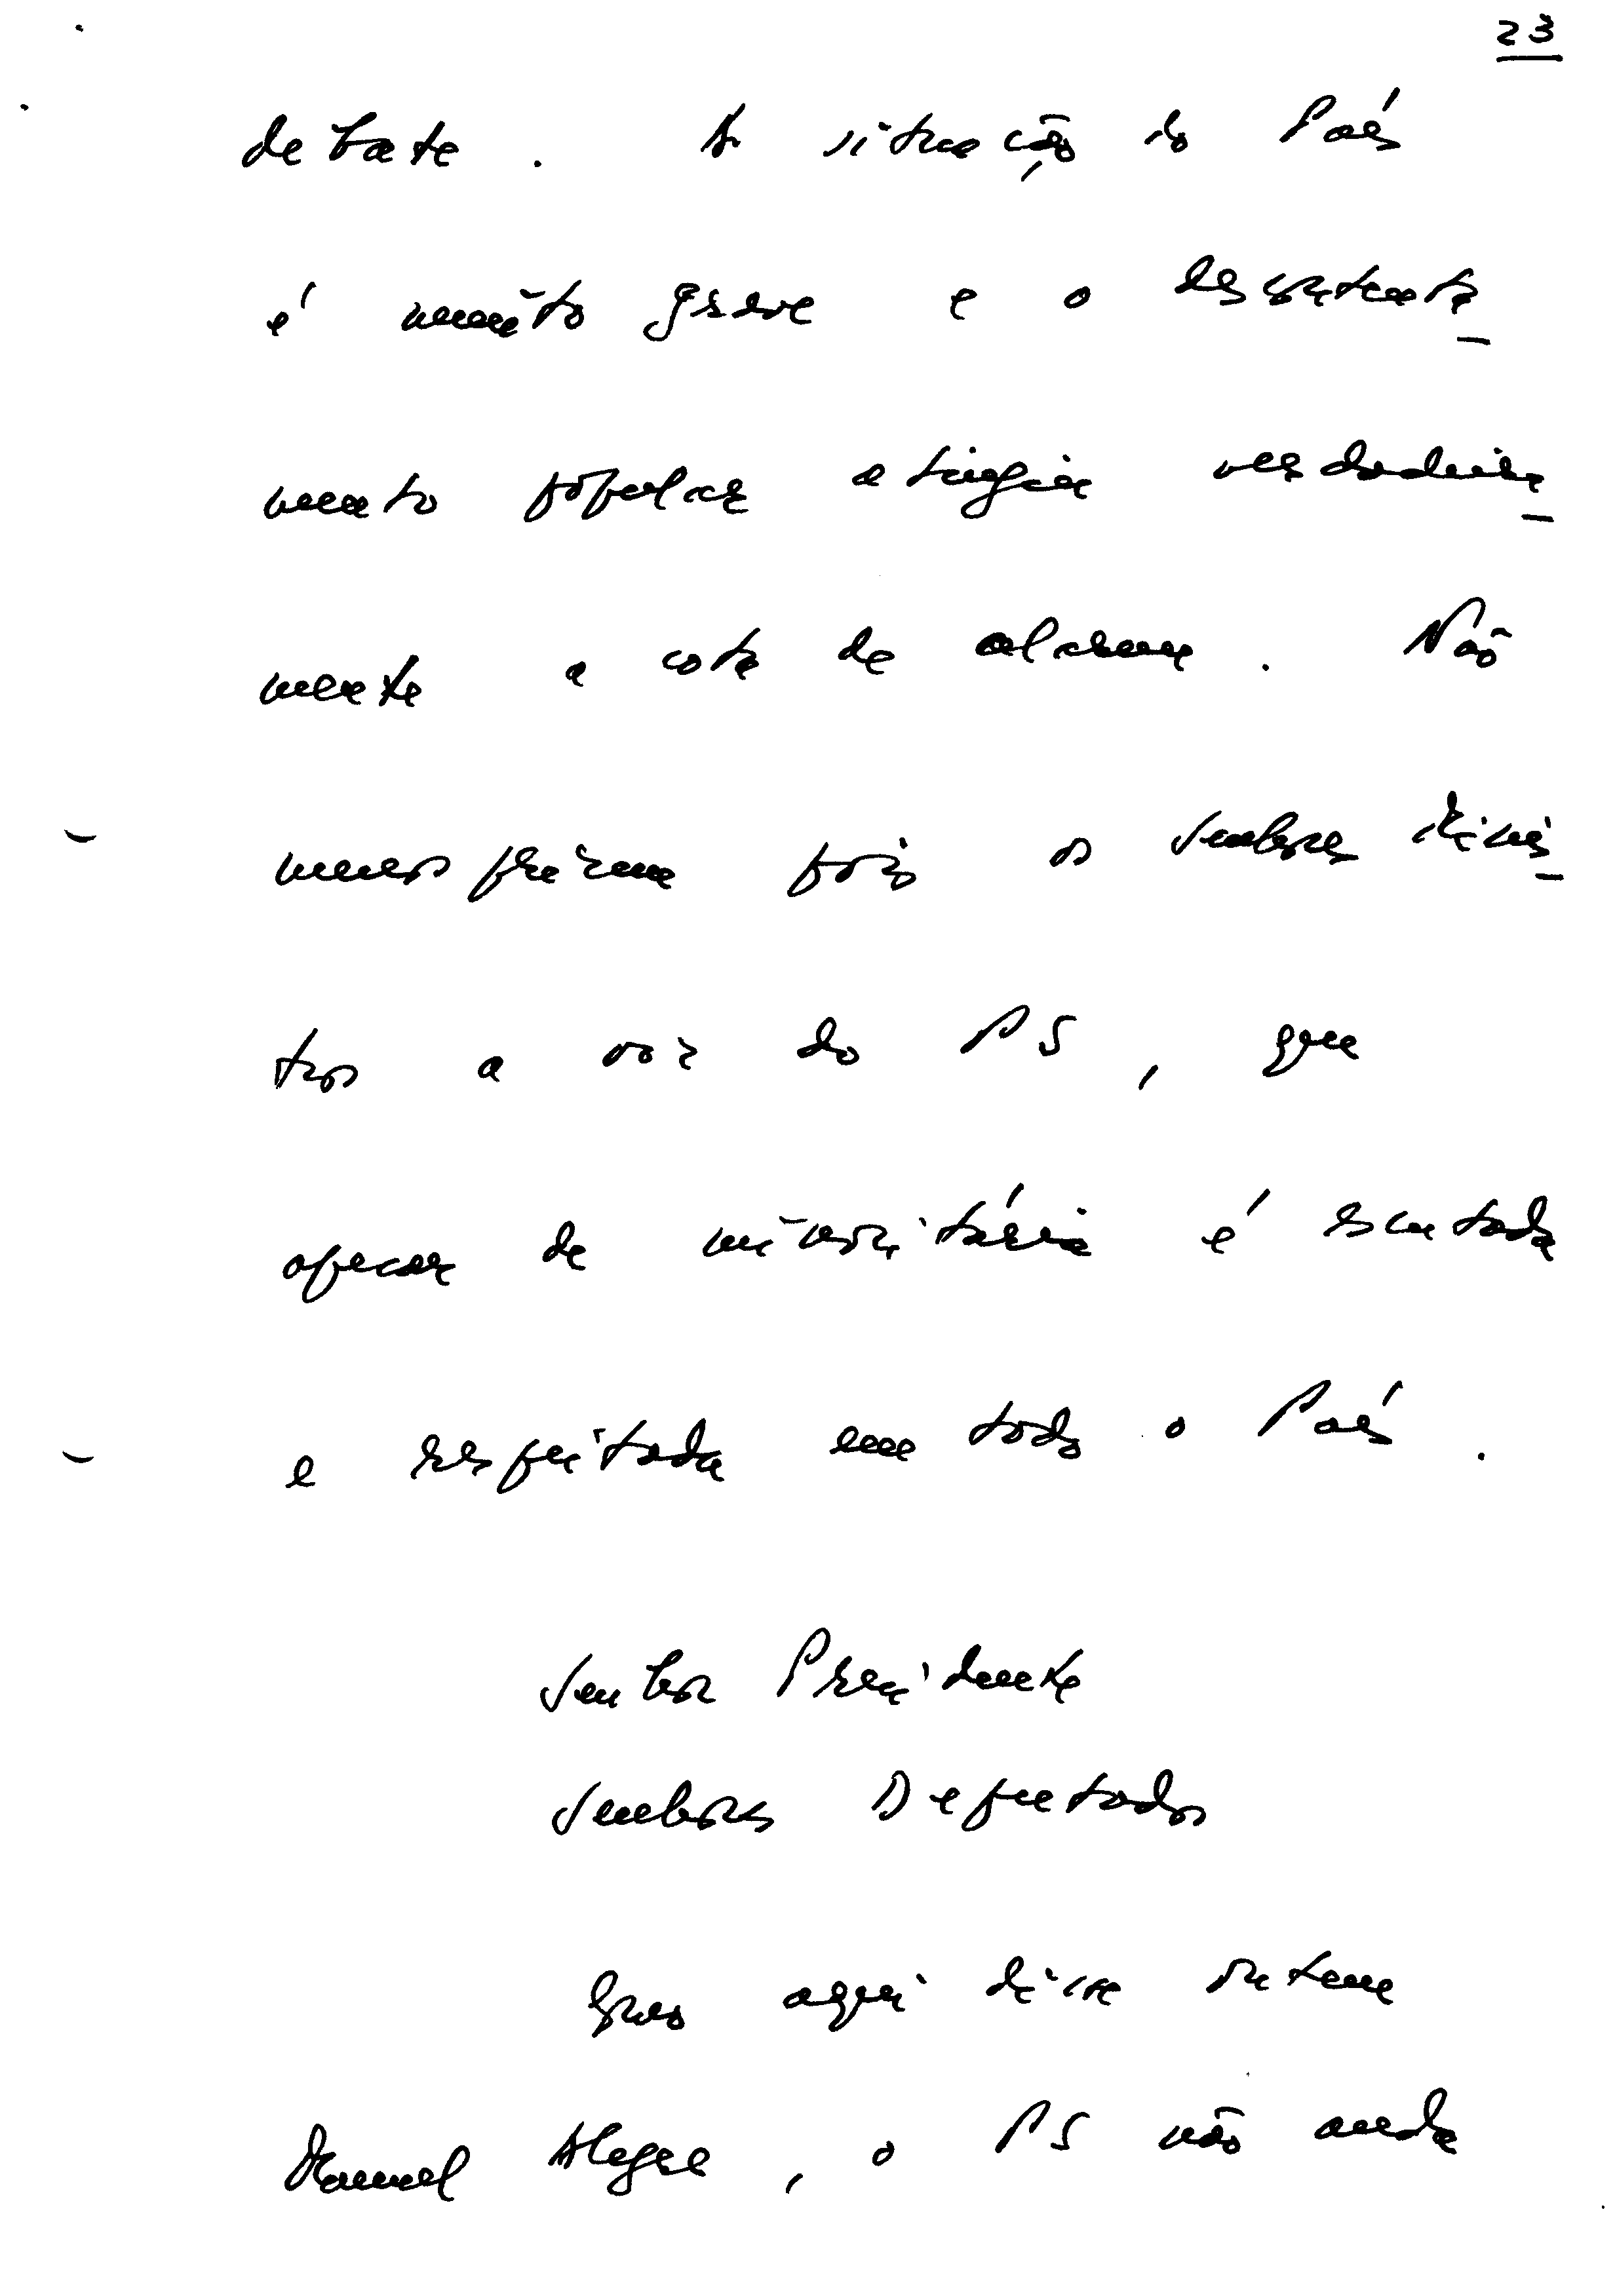 23
debate. A situação do País
é muito grave e o descontenta
mento popular atingiu verdadeira
mente a cota de alarme. Não
menosprezem pois os Senhores Minis
tros a voz do PS, que
apesar de minoritária é escutada
e respeitada em todo o País.
Senhor Presidente
Senhores Deputados
Como aqui disse ontem
Manuel Alegre, o PS não anda